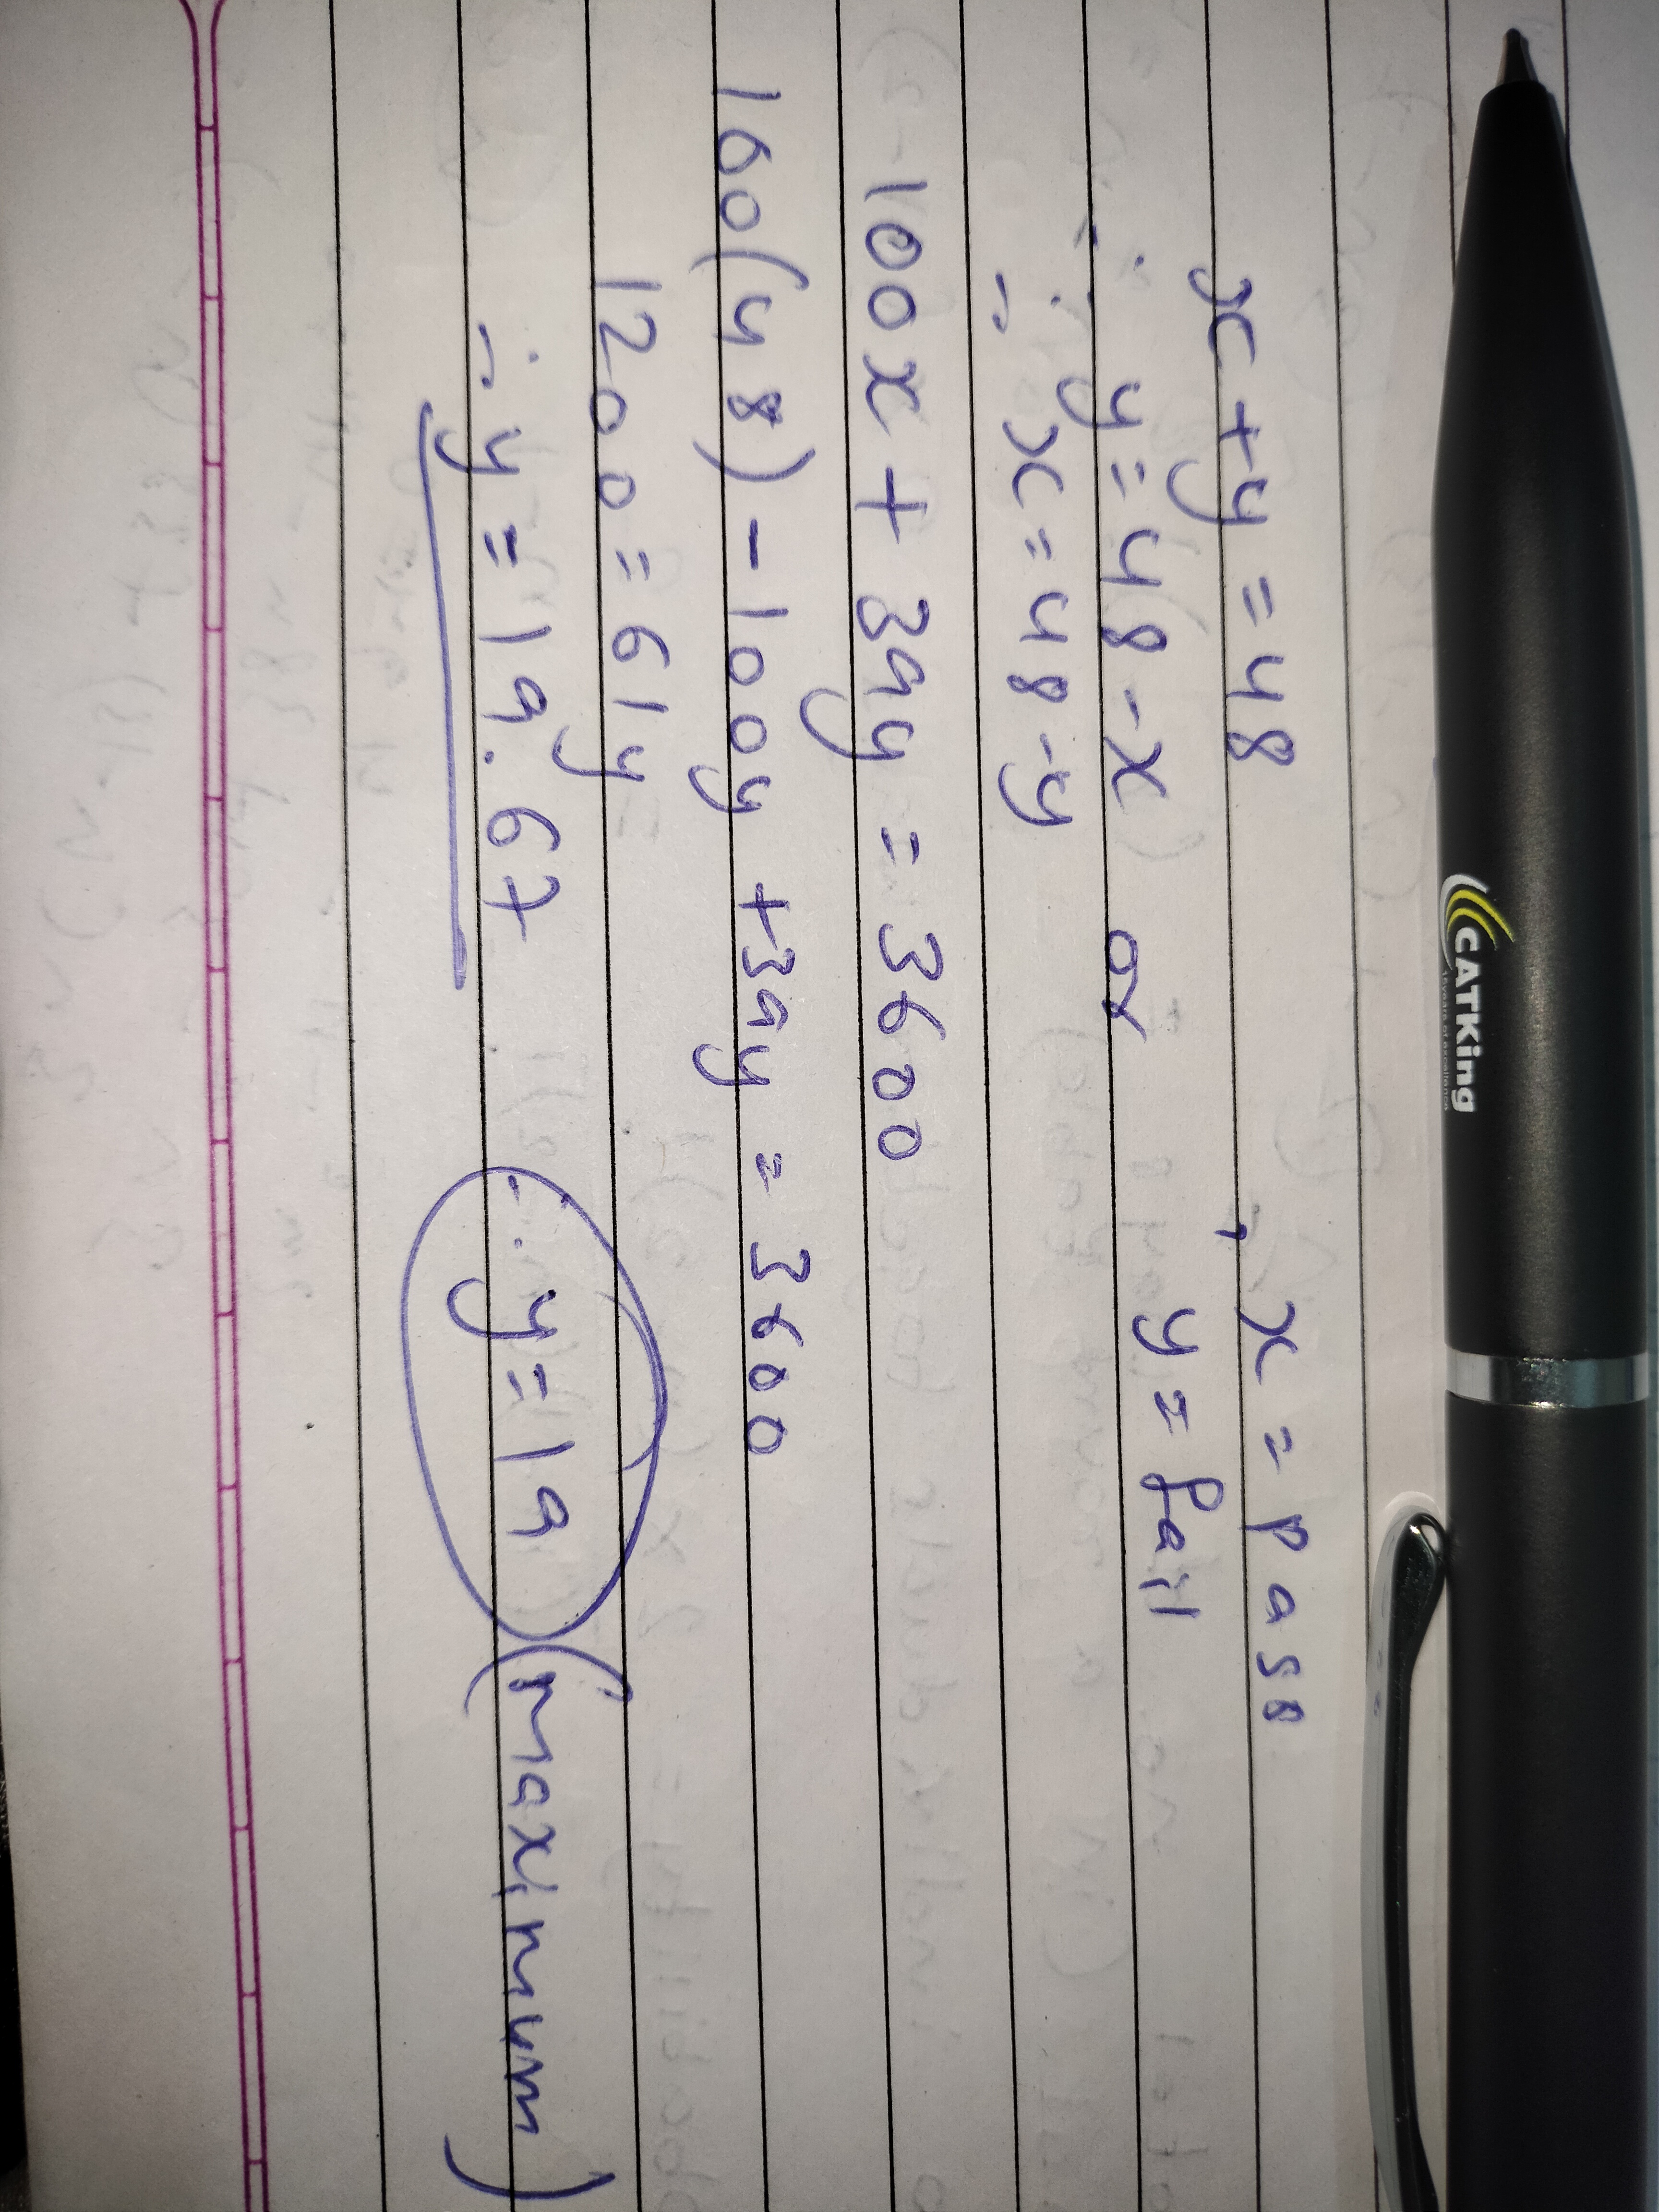 x + y = 48 , x = pass
∴ y = 48 - x or y = fail
∴ x = 48 - y
100x + 39y = 3600
100(48) - 100y + 39y = 3600
1200 = 61y
∴ y = 19.67 ∴ y = 19 (maximum)
CATKing